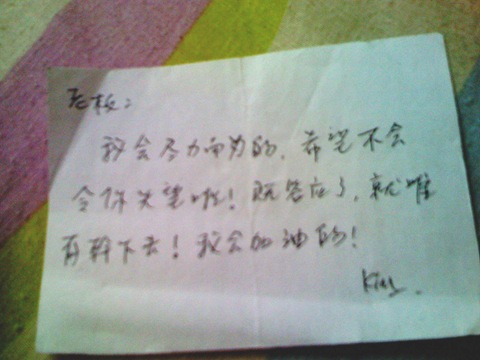 老板：
我会尽力而为的，希望不会
令你失望啦！既答应了，就唯
有幹下去！我会加油的！